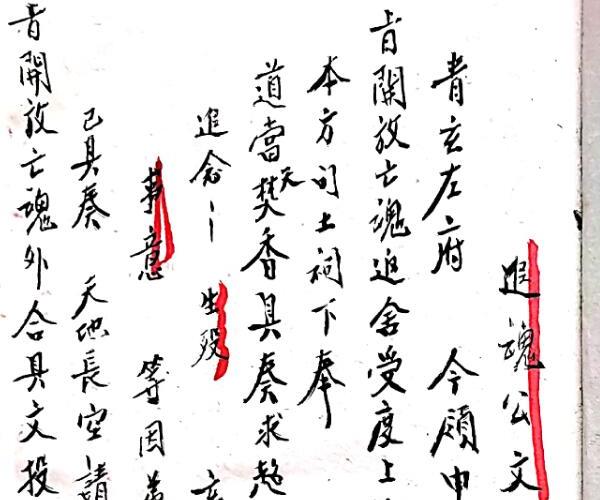 追魂公文
青玄左府 今頒申
旨開放亡魂追舍受度上
本方司土祠下奉
道當天焚香具奏求超
追念
生殁
事意 等因
已具奏 天地長空請
旨開放亡魂外合具文投